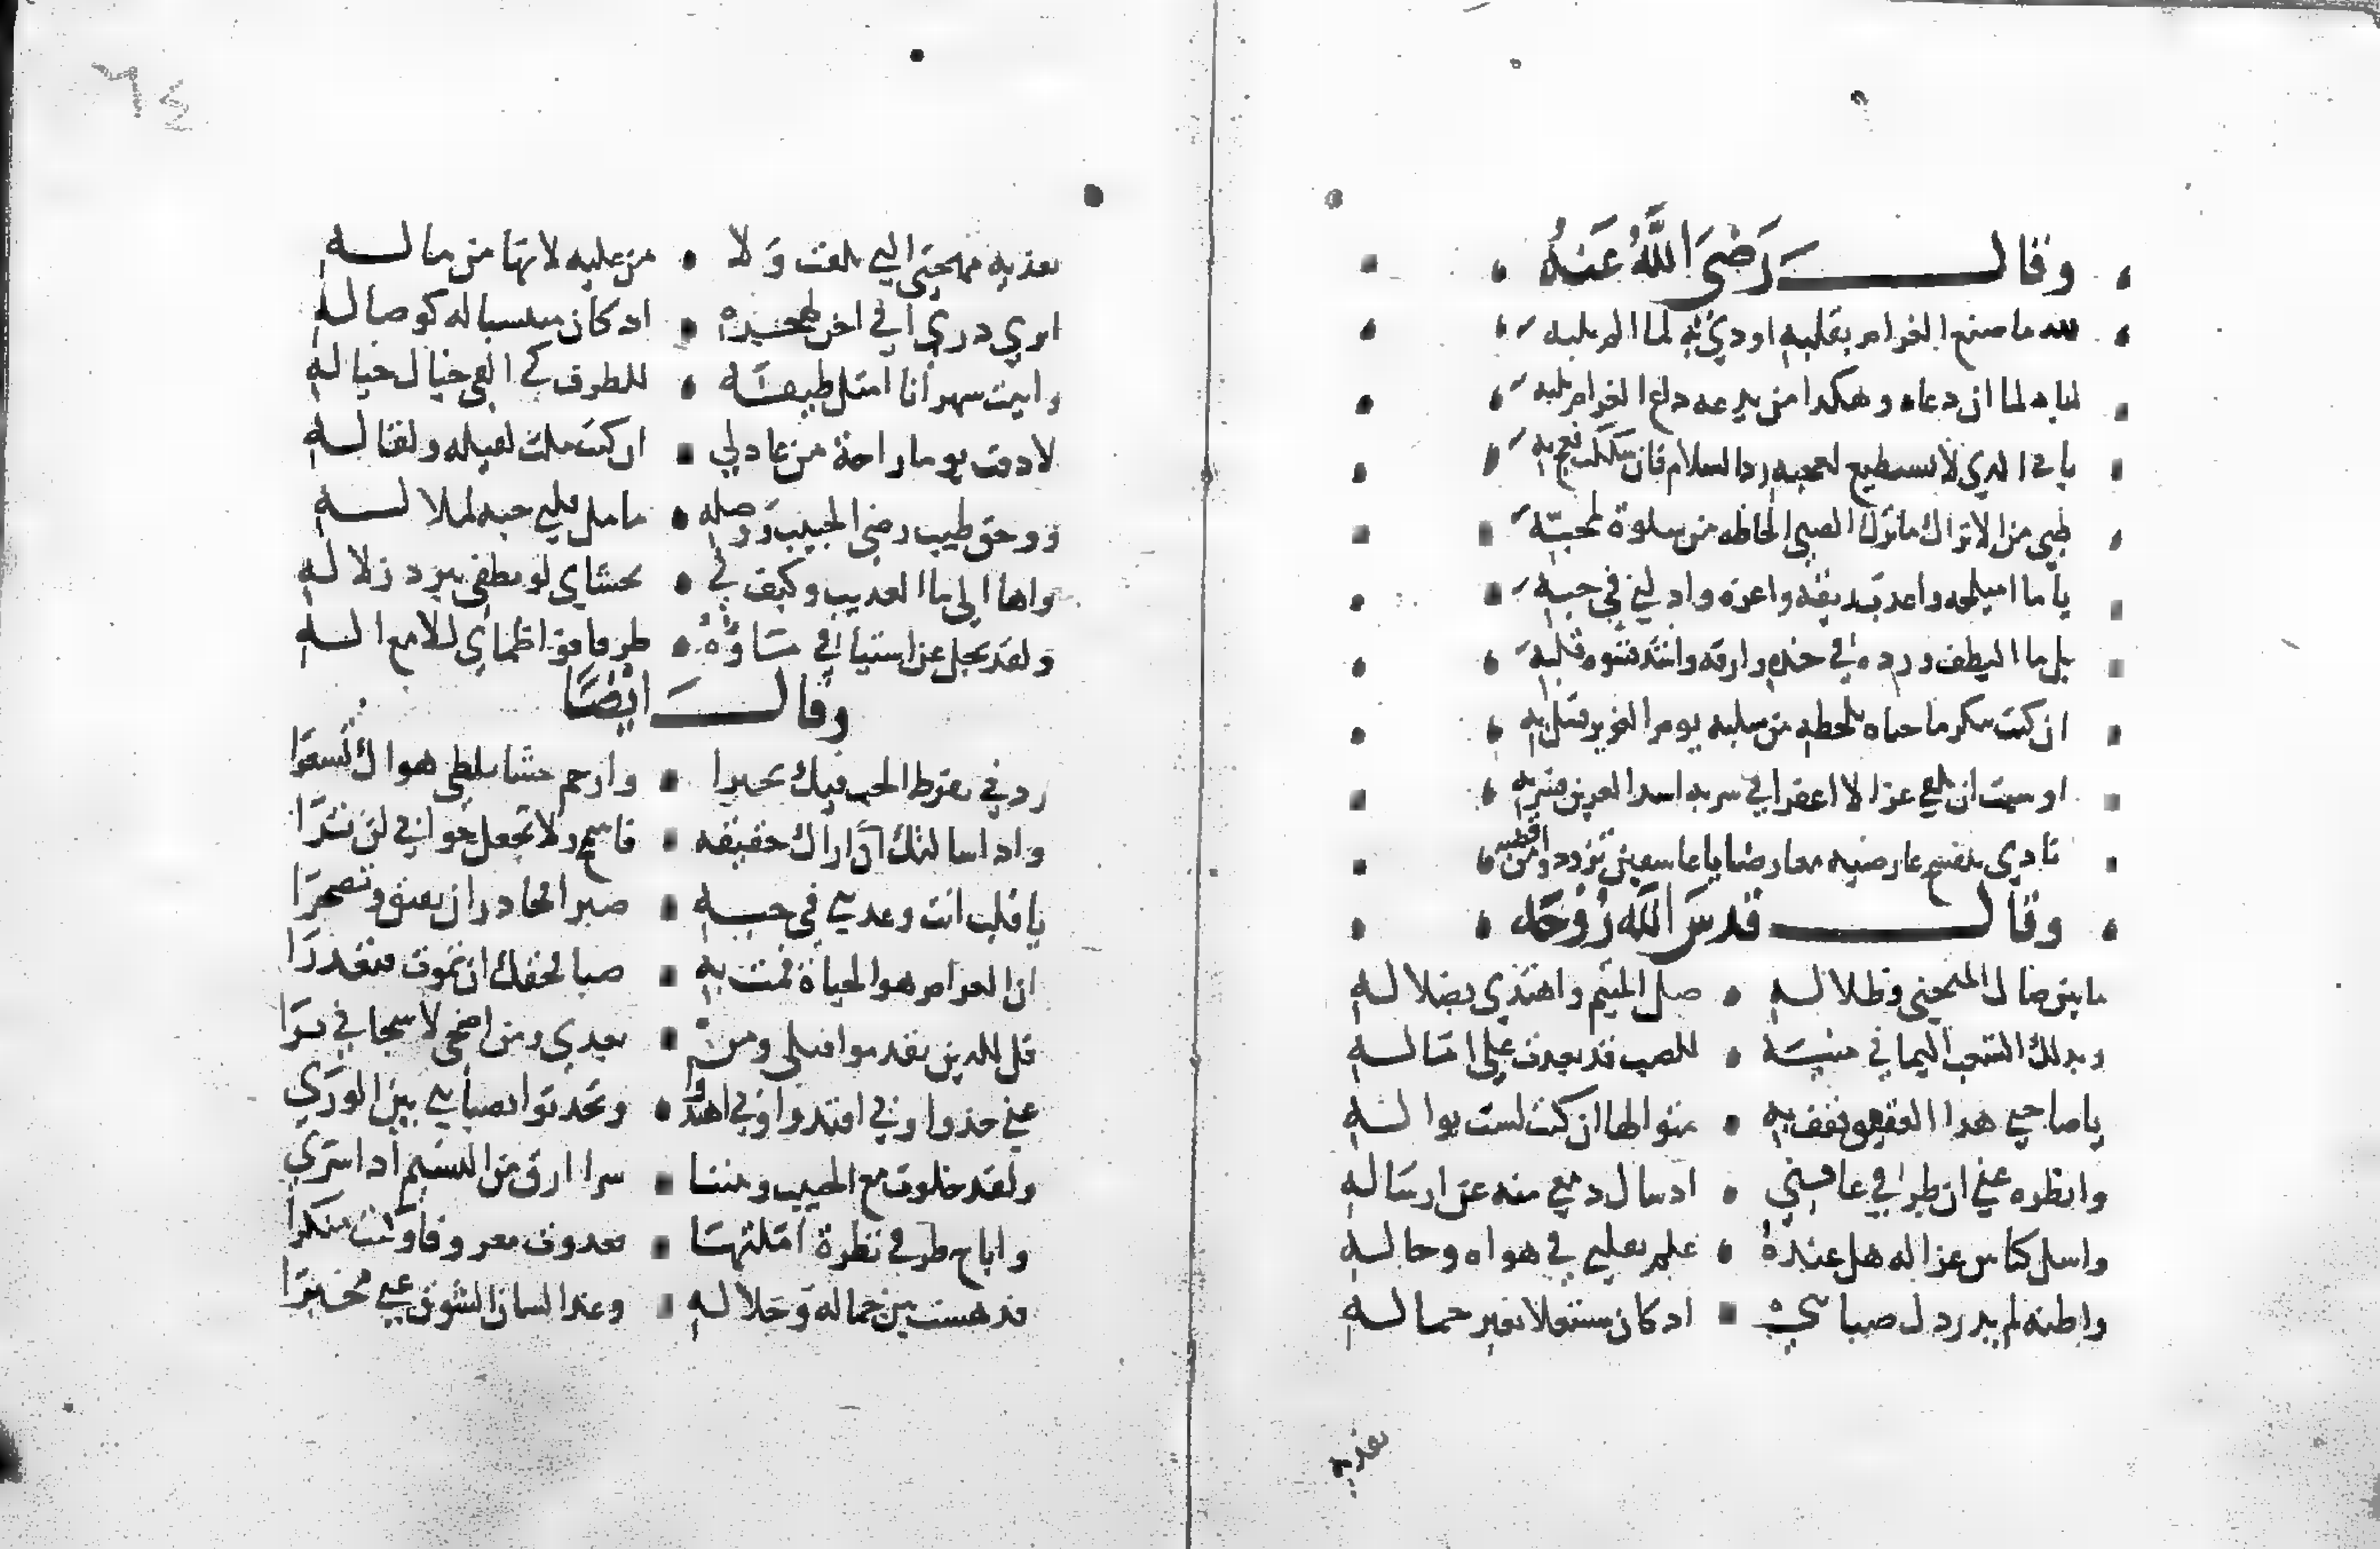 وقال رضي الله عنه
لله ما صنع الغرام بقلبه اودي به لما الم بلبه
لباه لما ان دعاه وهكدا من يدعه داع الغرام يلبه
بابي الدي لا يستطيع لعجبه رد السلام فان شككت فعج به
ظبي من الاتراك ما ترك الصبي الحاظه من سلوة لمحبه
يا ما اميلحه واعدب ريقه واعزه وادلني في حبه
بل ما اليطف ورده في خده وارقه واشد قسوة قلبه
ان كنت تنكر ما جناه بلحظه من سلبه يوم الغوير فسل به
او شيت ان تلقي غزالا اعفرا في سربه اسد العرين فسر به
نادي بنفسج عارضيه معارضا يا عاشقين تزودوا من اقطيه
وقال قدس الله روحه
ما بين ضال المنحني وظلاله صل المتيم واهتدي بضلاله
وبدلك الشعب اليماني منية للصب قد بعدت علي اماله
يا صاحبي هدا العقيق فقف به متوالها ان كنت لست بواله
وانظره عني ان طرفي عاقني ارسال دمعي منه عن ارساله
واسل كناس غزاله هل عنده علم بقلبي في هواه وحاله
واظنه لم يدر دل صبابتي اد كان مشتغلا بعز جماله
تفديه
تفديه مهجتي التي تلفت ولا من عليه لانها من ماله
اتري دري اني احن لهجره اد كان مشتبها له كوصاله
وابيت سهرانا امثل طيفه للطرف كي القي خيال خياله
لا دقت يوما راحة من عادلي ان كنت ملت لقيله ولقاله
فوحق طيب رضي الحبيب ووصله ما مل قلبي حبه لملاله
واها الي ما العديب وكيف لي بحشاي لو يطفي ببرد زلاله
ولقد يجل عن اشتياقي ماؤه طرفا فوا ظماي للامع اله
وقال ايضا
زدني بفرط الحب فيك تحيرا وارحم حشا بلظي هواك تسعرا
وادا سالتك ان اراك حقيقه فاسمح ولا تجعل جوابي لن ترا
يا قلب انت وعدتني في حبه صبرا فحادر ان تضيق وتضجرا
ان الغرام هو الحياة فمت به صبا فحقك ان تموت فتعدرا
قل للدين تقدموا قبلي ومن بعدي ومن اضحي لاشجاني يرا
عني خدوا وبي اقتدوا ولي اسمعوا وتحدثوا بصبابتي بين الوري
ولقد خلوت مع الحبيب وبيننا سرا ارق من النسيم ادا سري
واباح طرفي نظرة املتها فغدوت معروفا وكنت منكرا
فدهشت بين جماله وجلاله وغدا لسان الشوق عني مخبرا